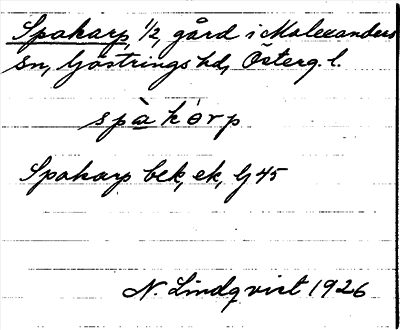 Spakarp 1/2, gård i Malexanders
sn, Göstrings hd, Österg. l.
spàkȯrp
Spakarp bek, ek, G 45
N. Lindqvist 1926